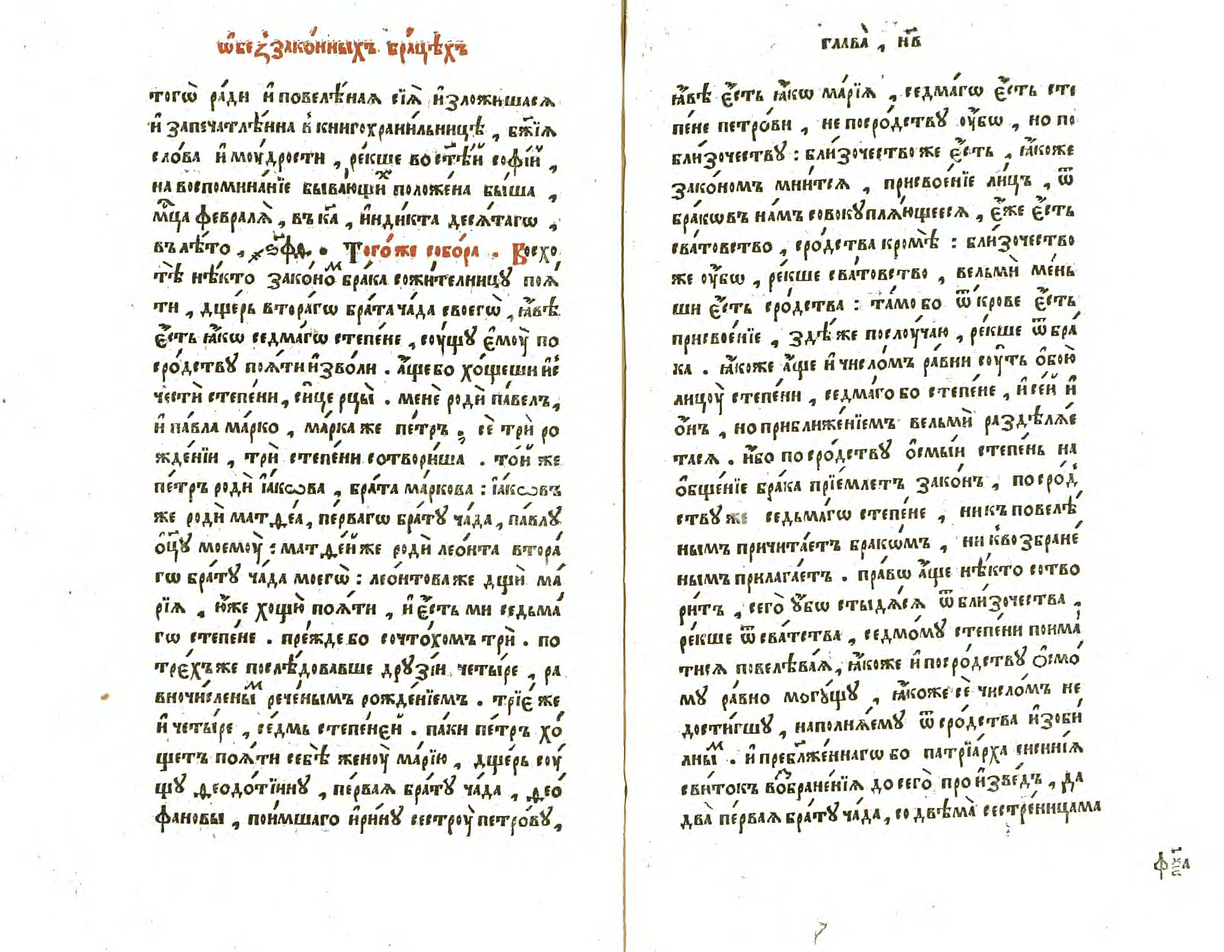 ѡ҆беззако́нныхъ бра́цѣхъ
тогѡ̀ ра́ди и҆ повелѣ́наѧ сїѧ̀ и҆зложи́шасѧ
и҆ запечатлѣ́нна в̾ книгохрани́льницѣ , бж҃їѧ
сло́ва и҆ моу́дрости , ре́кше во ст҃ѣ́й софі́й ,
на воспомина́нїе быва́ющиⷯ положе́на бы́ша ,
мц҃а февралѧ̀ , въ к҃а , и҆нди́кта десѧ́тагѡ ,
въ лѣ́то , ҂ѕ҃фд . Того́же собо́ра . Восхо
тѣ̀ нѣ́кто зако́ноⷨ бра́ка сожи́телницꙋ поѧ́
ти , дще́рь втора́гѡ бра́та ча́да своегѡ̀ , ꙗ҆́вѣ
є҆́сть ꙗ҆́кѡ седма́гѡ степе́не , соу́щꙋ є҆моу̀ по
сро́дствꙋ поѧ́ти и҆зво́ли . а҆́ще бо хо́щеши и҆с
че́сти степе́ни , си́це рцы̀ . менѐ родѝ па́велъ ,
и҆ па́вла ма́рко , ма́рка же пе́тръ , сѐ трѝ ро
жде́нїи , трѝ степе́ни сотвори́ша . то́й же
пе́тръ родѝ і҆а́кѡва , бра́та ма́ркова : і҆а́кѡвъ
же родѝ матѳе́а , пе́рвагѡ бра́тꙋ ча́да , па́влꙋ
ѻ҆ц҃ꙋ̀ моемоу̀ : матѳе́й же родѝ лео́нта втора́
гѡ бра́тꙋ ча́да моегѡ̀ : лео́нтова же дщѝ ма
рі́ѧ , ю҆́же хощꙋ̀ поѧ́ти , и҆ є҆́сть ми седьма́
гѡ степе́не . пре́жде бо сочто́хомъ трѝ . по
тре́хъ же послѣ́довавше дрꙋзі́и четы́ре , ра
вночи́слены̏ⷨ рече́нымъ рожде́нїемъ . трїѐ же
и҆ четы́ре , се́дмь степене́й . па́ки пе́тръ хо́
щетъ поѧ́ти себѣ̀ женоу̀ марі́ю , дще́рь соу́
щꙋ ѳеодоті́инꙋ , пе́рваѧ бра́тꙋ ча́да , ѳео
фа́новы , пои́мшаго и҆ри́нꙋ сестроу̀ петро́вꙋ ,
глава̀ , н҃в
ꙗ҆́вѣ є҆́сть ꙗ҆́кѡ марі́ѧ , седма́гѡ є҆́сть сте
пе́не петро́ви , не по сро́дствꙋ оу҆́бѡ , но по
бли́зочествꙋ : бли́зочество же є҆́сть , ꙗ҆́коже
зако́номъ мни́тсѧ , присвое́нїе ли́цъ , ѿ
бра́кѡвъ на́мъ совокꙋплѧ́ющеесѧ , є҆́же є҆́сть
сва́товство , сро́дства кромѣ̀ : бли́зочество
же оу҆́бѡ , ре́кше сва́товство , вельмѝ ме́нь
ши є҆́сть сро́дства : та́мо бо ѿ кро́ве є҆́сть
присвое́нїе , здѣ́ же послоу́чаю , ре́кше ѿ бра́
ка . ꙗ҆́коже а҆́ще и҆ число́мъ ра́вни соу́ть ѻ҆бою̀
лицоу̀ степе́ни , седма́го бо степе́не , и҆ се́й и҆
ѻ҆́нъ , но приближе́нїемъ вельмѝ раздѣлѧ́е
тасѧ . и҆́бо по сро́дствꙋ ѻ҆смы́и степе́нь на
ѻ҆бще́нїе бра́ка прїе́млетъ зако́нъ , по сро́д
ствꙋ же седьма́гѡ степе́не , ни къ повелѣ́
нымъ причита́етъ бра́кѡмъ , ни к̾ возбране́
нымъ прилага́етъ . пра́вѡ а҆́ще нѣ́кто сотво
ри́тъ , сего̀ ᲂу҆́бѡ стыдѧ́сѧ ѿ бли́зочества ,
ре́кше ѿ сва́тства , седмо́мꙋ степе́ни поима́
тисѧ повелѣва́ѧ , ꙗ҆́коже и҆ по сро́дствꙋ ѻ҆смо́
мꙋ ра́вно могꙋ́щꙋ , ꙗ҆́коже сѐ число́мъ не
дости́гшꙋ , наполнѧ́емꙋ ѿ сро́дства и҆зоби́
лны̏ⷨ . и҆ пребл҃же́ннагѡ бо патрїа́рха сисі́нїѧ
сви́токъ воѡбране́нїѧ до сего̀ произве́дъ , да
два̀ пе́рваѧ бра́тꙋ ча́да , со двѣ́ма сестре́ницама
ф҃ка